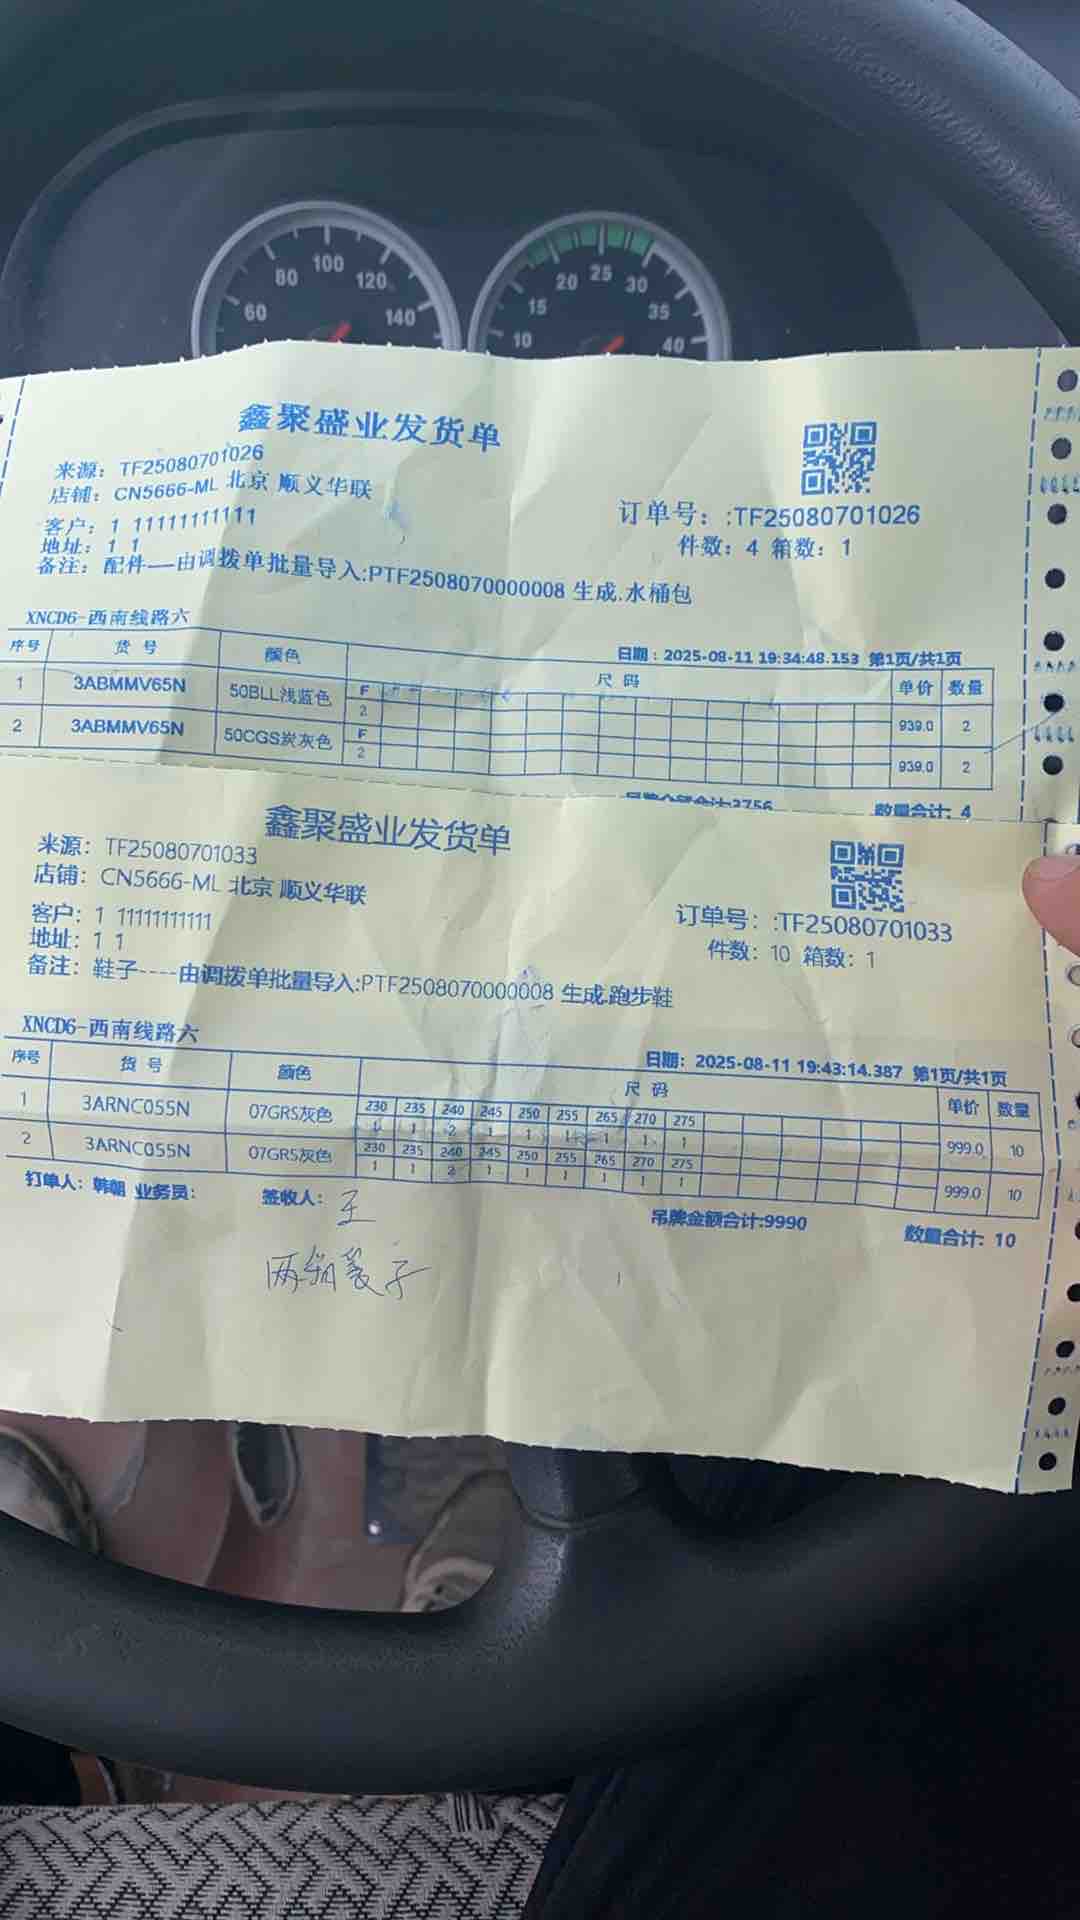 60 80 100 120 140
10 15 20 25 30 35 40
鑫聚盛业发货单
来源：TF25080701026
店铺：CN5666-ML 北京 顺义华联
订单号：:TF25080701026
客户：1 11111111111
件数：4 箱数：1
地址：1 1
备注：配件—由调拨单批量导入:PTF2508070000008 生成.水桶包
XNCD6-西南线路六
日期：2025-08-11 19:34:48.153 第1页/共1页
序号 货 号 颜色 尺 码 单价 数量
1 3ABMMV65N 50BLL浅蓝色 F 939.0 2
2
2 3ABMMV65N 50CGS炭灰色 F 939.0 2
2
吊牌金额合计:3756 数量合计: 4
鑫聚盛业发货单
来源：TF25080701033
店铺：CN5666-ML 北京 顺义华联
订单号：:TF25080701033
客户：1 11111111111
件数：10 箱数：1
地址：1 1
备注：鞋子----由调拨单批量导入:PTF2508070000008 生成.跑步鞋
XNCD6-西南线路六
日期：2025-08-11 19:43:14.387 第1页/共1页
序号 货 号 颜色 尺 码 单价 数量
1 3ARNC055N 07GRS灰色 230 235 240 245 250 255 265 270 275 999.0 10
1 1 2 1 1 1 1 1 1
2 3ARNC055N 07GRS灰色 230 235 240 245 250 255 265 270 275 999.0 10
1 1 2 1 1 1 1 1 1
打单人：韩朝 业务员： 签收人： 王
吊牌金额合计:9990 数量合计: 10
两箱
子